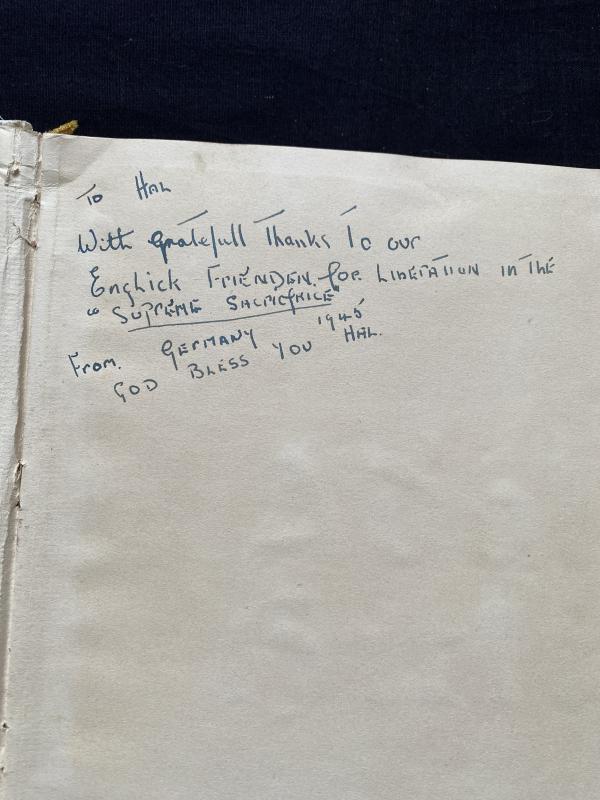 To Hal
With gratefull Thanks To our
Englick FRIENDEN. for LIBERATION in THE
"SUPREME SACRICFRICE"
From. GERMANY 1945
GOD BLESS YOU HAL.